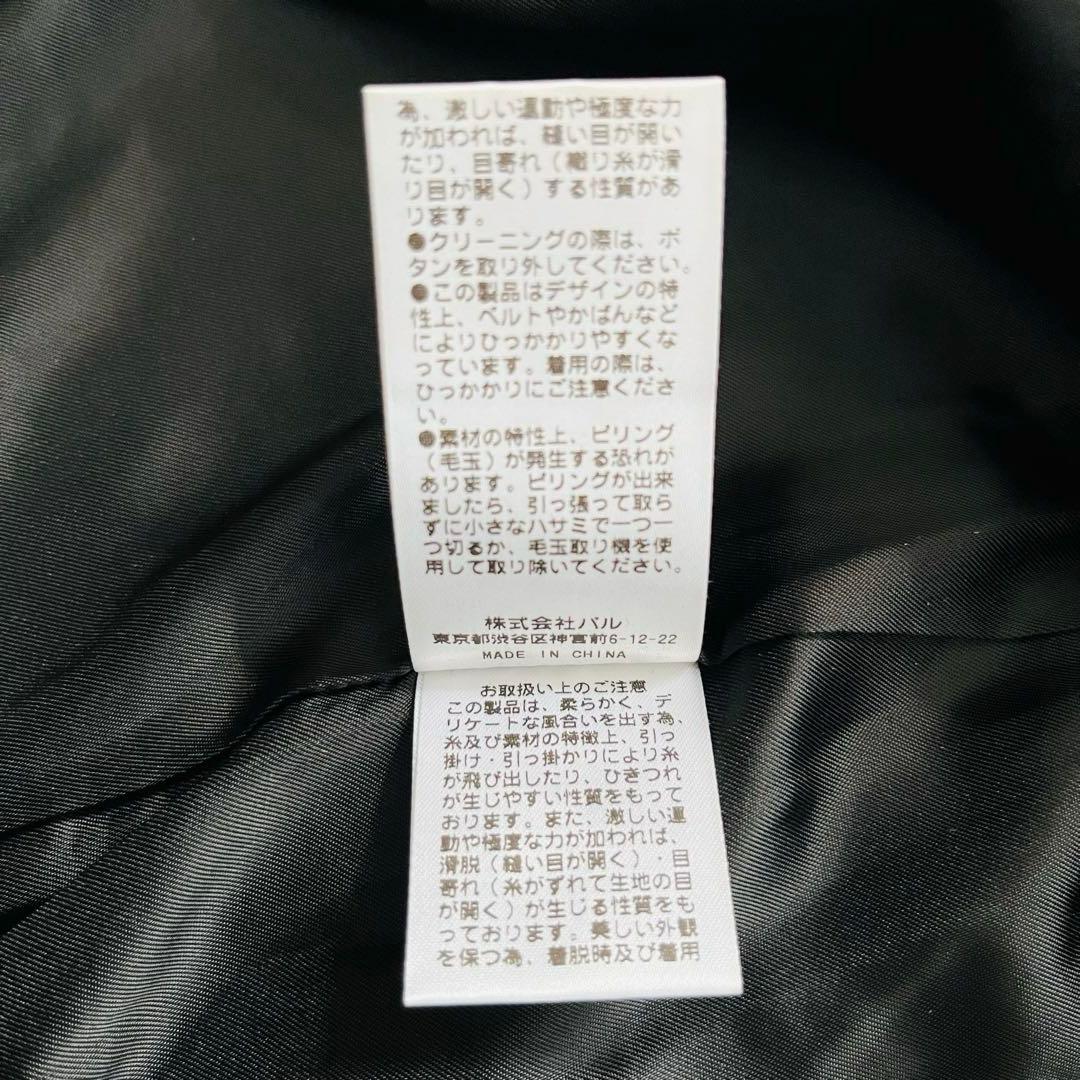 為、激しい運動や極度な力
が加われば、縫い目が開い
たり、目寄れ（織り糸が滑
り目が開く）する性質があ
ります。
●クリーニングの際は、ボ
タンを取り外してください。
●この製品はデザインの特
性上、ベルトやかばんなど
によりひっかかりやすくな
っています。着用の際は、
ひっかかりにご注意くださ
い。
●素材の特性上、ピリング
（毛玉）が発生する恐れが
あります。ピリングが出来
ましたら、引っ張って取ら
ずに小さなハサミで一つ一
つ切るか、毛玉取り機を使
用して取り除いてください。
株式会社パル
東京都渋谷区神宮前6-12-22
MADE IN CHINA
お取扱い上のご注意
この製品は、柔らかく、デ
リケートな風合いを出す為、
糸及び素材の特徴上、引っ
掛け・引っ掛かりにより糸
が飛び出したり、ひきつれ
が生じやすい性質をもって
おります。また、激しい運
動や極度な力が加われば、
滑脱（縫い目が開く）・目
寄れ（糸がずれて生地の目
が開く）が生じる性質をも
っております。美しい外観
を保つ為、着脱時及び着用